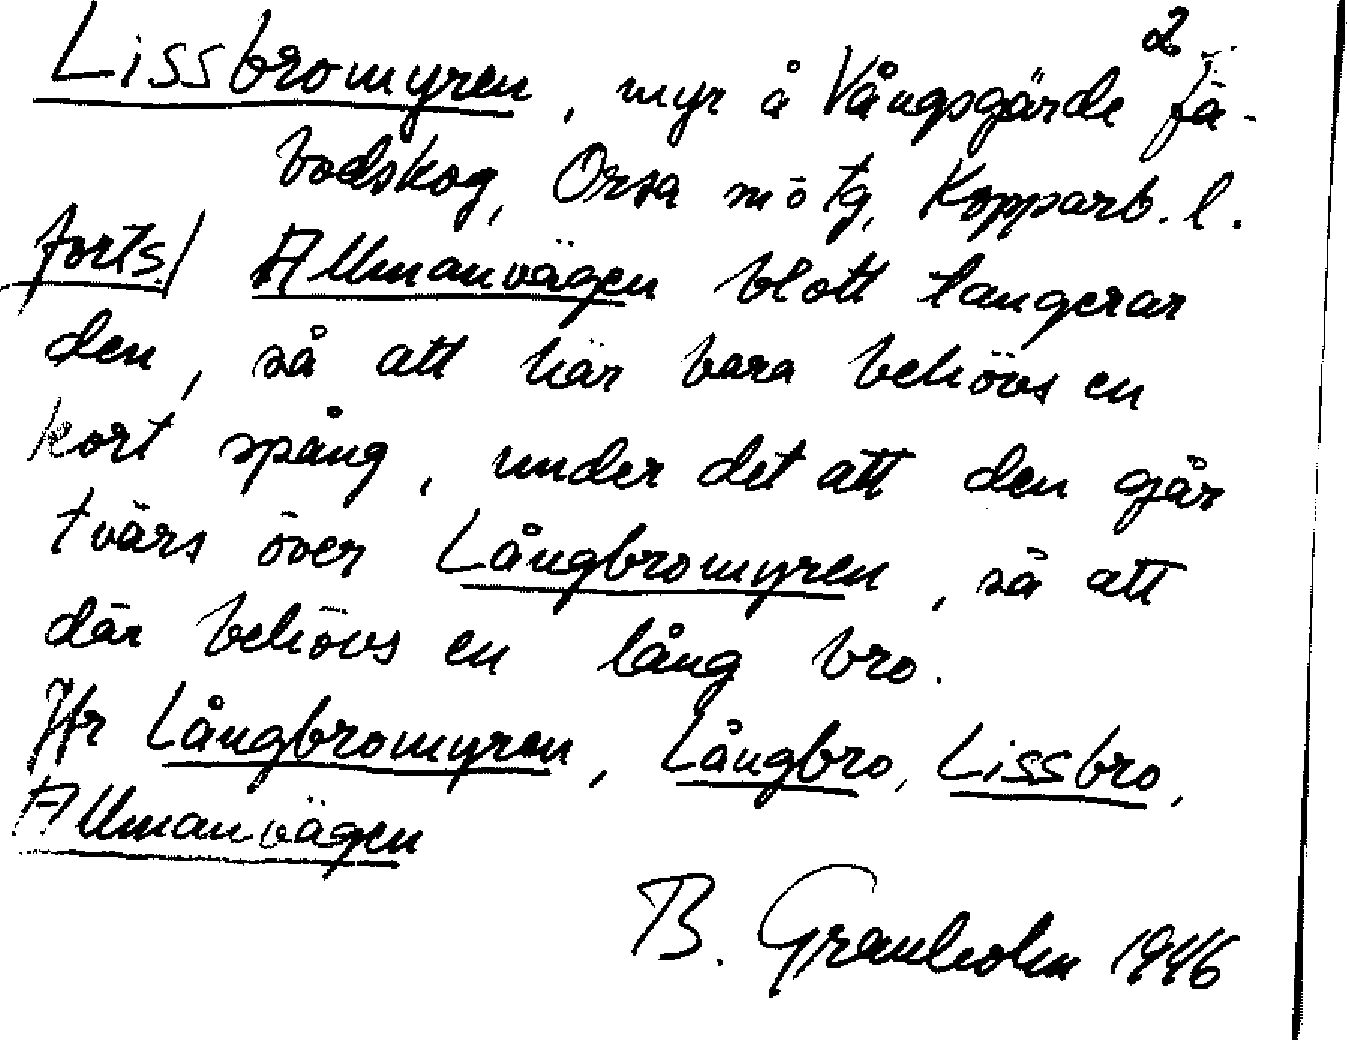 2
Lissbromyren, myr å Vångsgärde fä-
bodskog, Orsa sn ö tg, Kopparb. l.
forts./ Allmanvägen blott tangerar
den, så att här bara behövs en
kort spång, under det att den går
tvärs över Långbromyren, så att
där behövs en lång bro.
Jfr Långbromyren, Långbro, Lissbro,
Allmanvägen
B. Granholm 1946